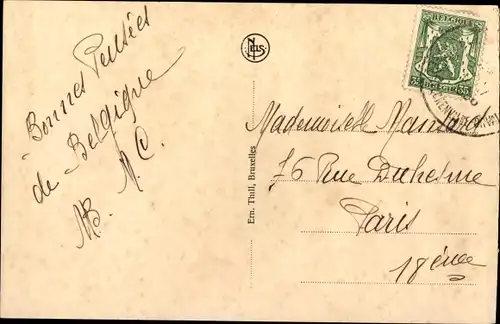 Bonnes Pensées
de Belgique
M. C.
Nels
BELGIQUE
35 BELGIE 35
Ern. Thill, Bruxelles
Mademoiselle
76 Rue Duhesme
Paris
18ème